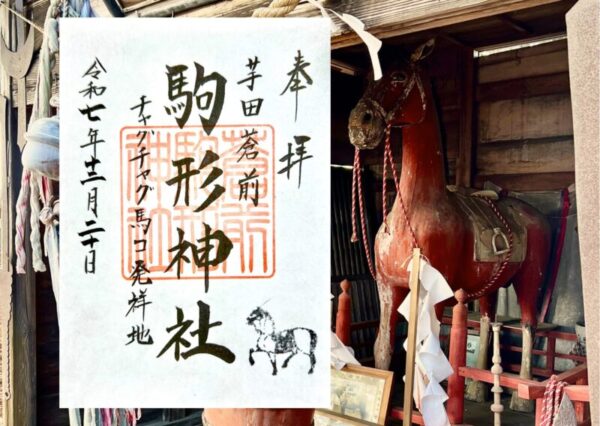 奉拝
芋田蒼前
駒形神社
チャグチャグ馬コ発祥地
令和七年十二月二十日